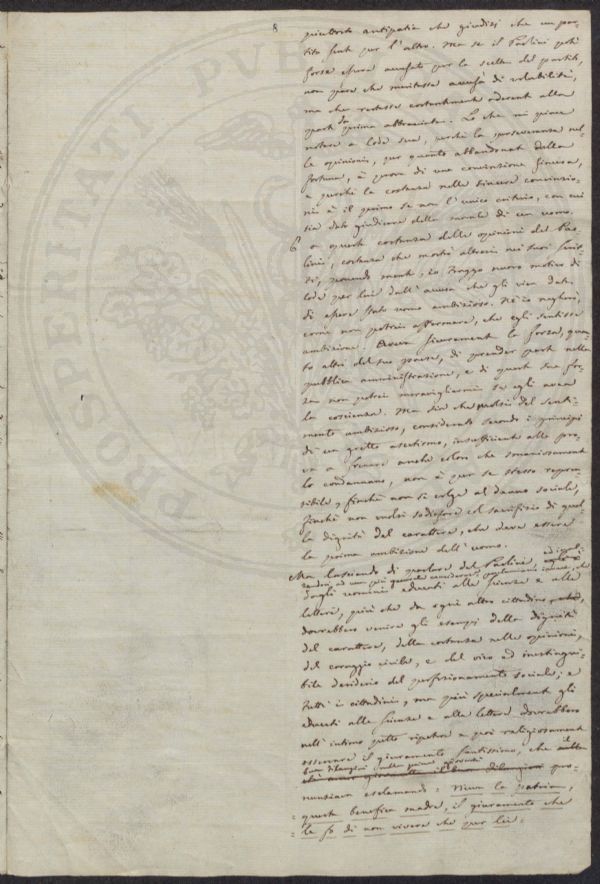 8
piuttosto antipatia che giudizi che un par-
tito sente per l'altro. Ma se il Paolini potè
forse essere accusato per la scelta dei partiti,
non pare che meritasse accusa di volabilità,
ma che restasse costantemente aderente alla
parte da prima abbracciata. Lo che mi piace
notare a lode sua, perchè la perseveranza nel-
le opinioni, per quanto abbandonate dalla
fortuna, è prova di una convinzione sincera,
e perchè la costanza nelle sincere convinzio-
ni è il primo se non l'unico criterio, con cui
sia dato giudicare della morale di un uomo.
6 a questa costanza delle opinioni del Pao-
lini, costanza che mostrò altresì nei suoi scrit-
ti, ponendo mente, io traggo nuovo motivo di
lode per lui dall'accusa che gli vien data
di essere stato uomo ambizioso. Nè io negherò,
come non potrei affermare, che egli sentisse
ambizione. Aveva sicuramente la forza, quan-
to altri del suo paese, di prender parte nella
pubblica amministrazione, e di questa sua for-
za non potrei meravigliarmi se egli avea
la coscienza. Ma sia che parlisi del senti-
mento ambizioso, considerato secondo i principi
di un gretto ascetismo, insufficiente alla pro-
va a frenare anche coloro che romorosamente
lo condannano, non è per se stesso repren-
sibile, finchè non si volge al danno sociale,
finchè non vuolsi sodisfare col sacrifizio di quel-
la dignità del carattere, che deve essere
la prima ambizione dell'uomo.
Ma lasciando di parlare del Paolini
dagli uomini educati alle scienze e alle
lettere, più che da ogni altro cittadino
dovrebbero venire gli esempi della dignità
del carattere, della costanza nelle opinioni,
del coraggio civile, e del vivo ed inestingui-
bile desiderio del perfezionamento sociale; e
tutti i cittadini, ma più specialmente gli
educati alle scienze e alle lettere dovrebbero
nell'intimo petto ripetere e poi religiosamente
osservare il giuramento santissimo, che il
buon Silangieri sulla patria
pro-
nunziava esclamando: Viva la patria,
= questa benefica madre, il giuramento che
= le fo di non vivere che per lei.